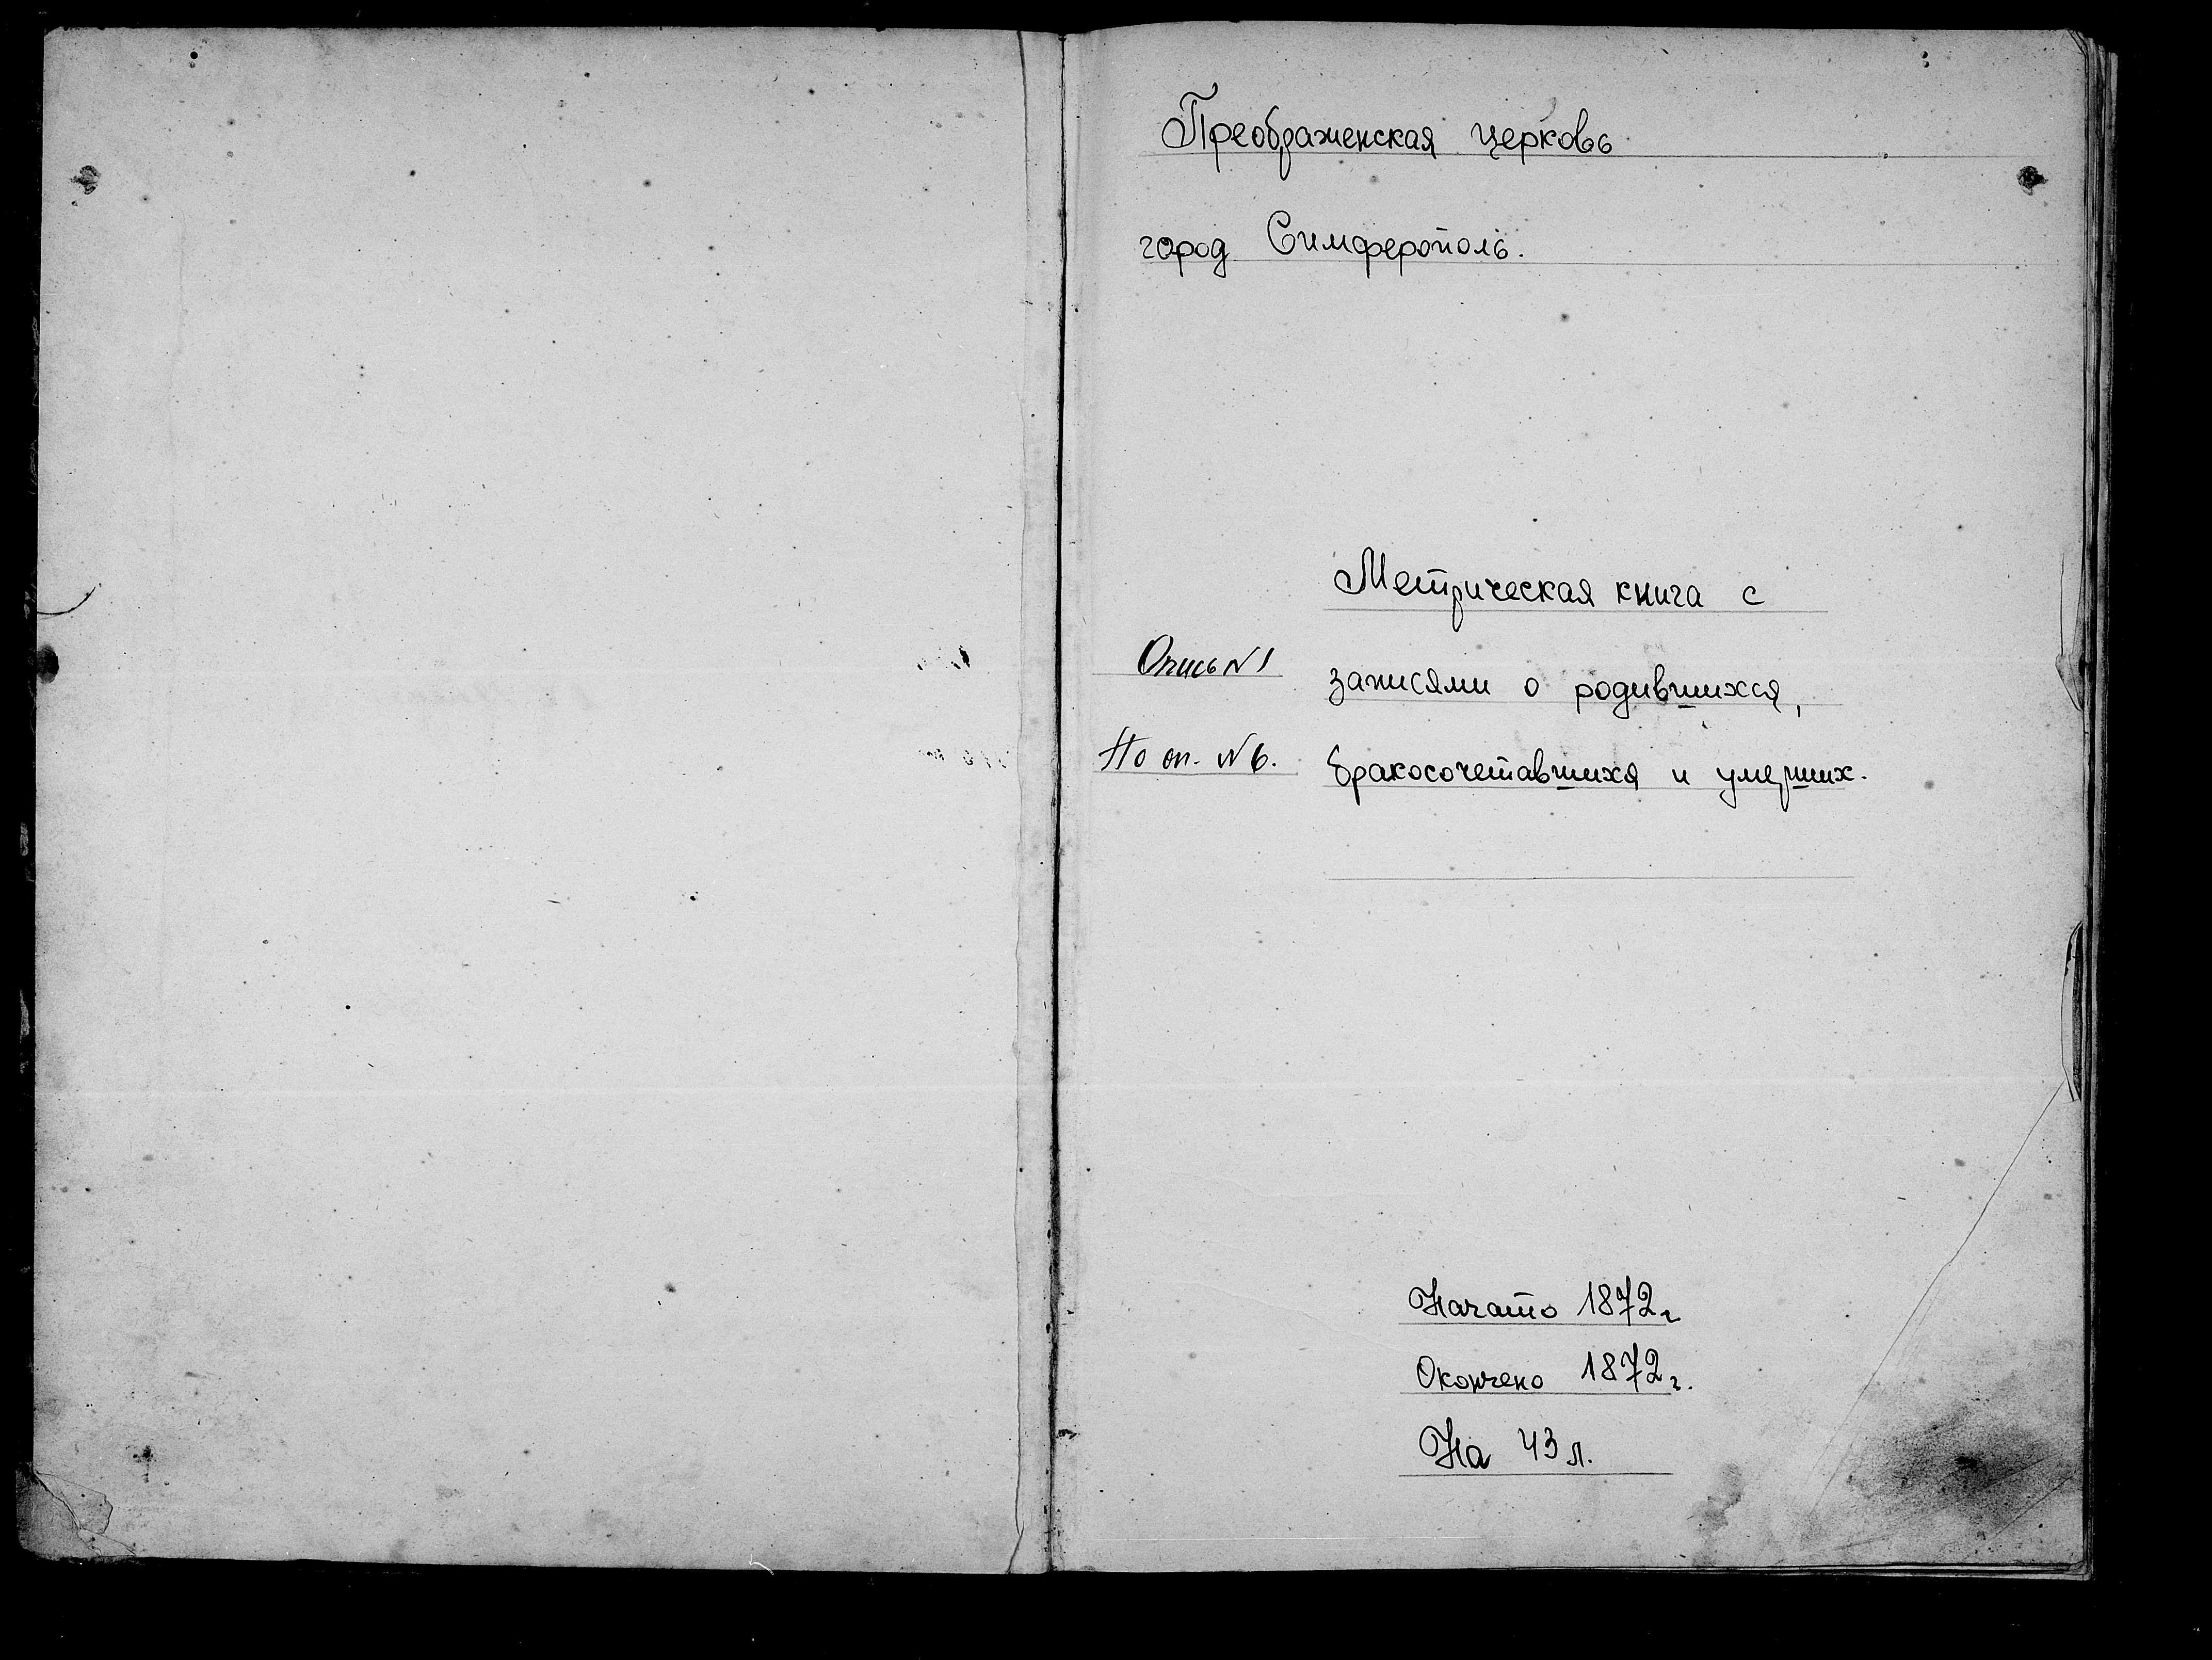 Преображенская церковь
город Симферополь.
Метрическая книга с
Опись N 1
записями о родившихся,
По оп. N 6.
бракосочетавшихя и умерших.
Начато 1872 г
Окончено 1872 г.
На 43 л.